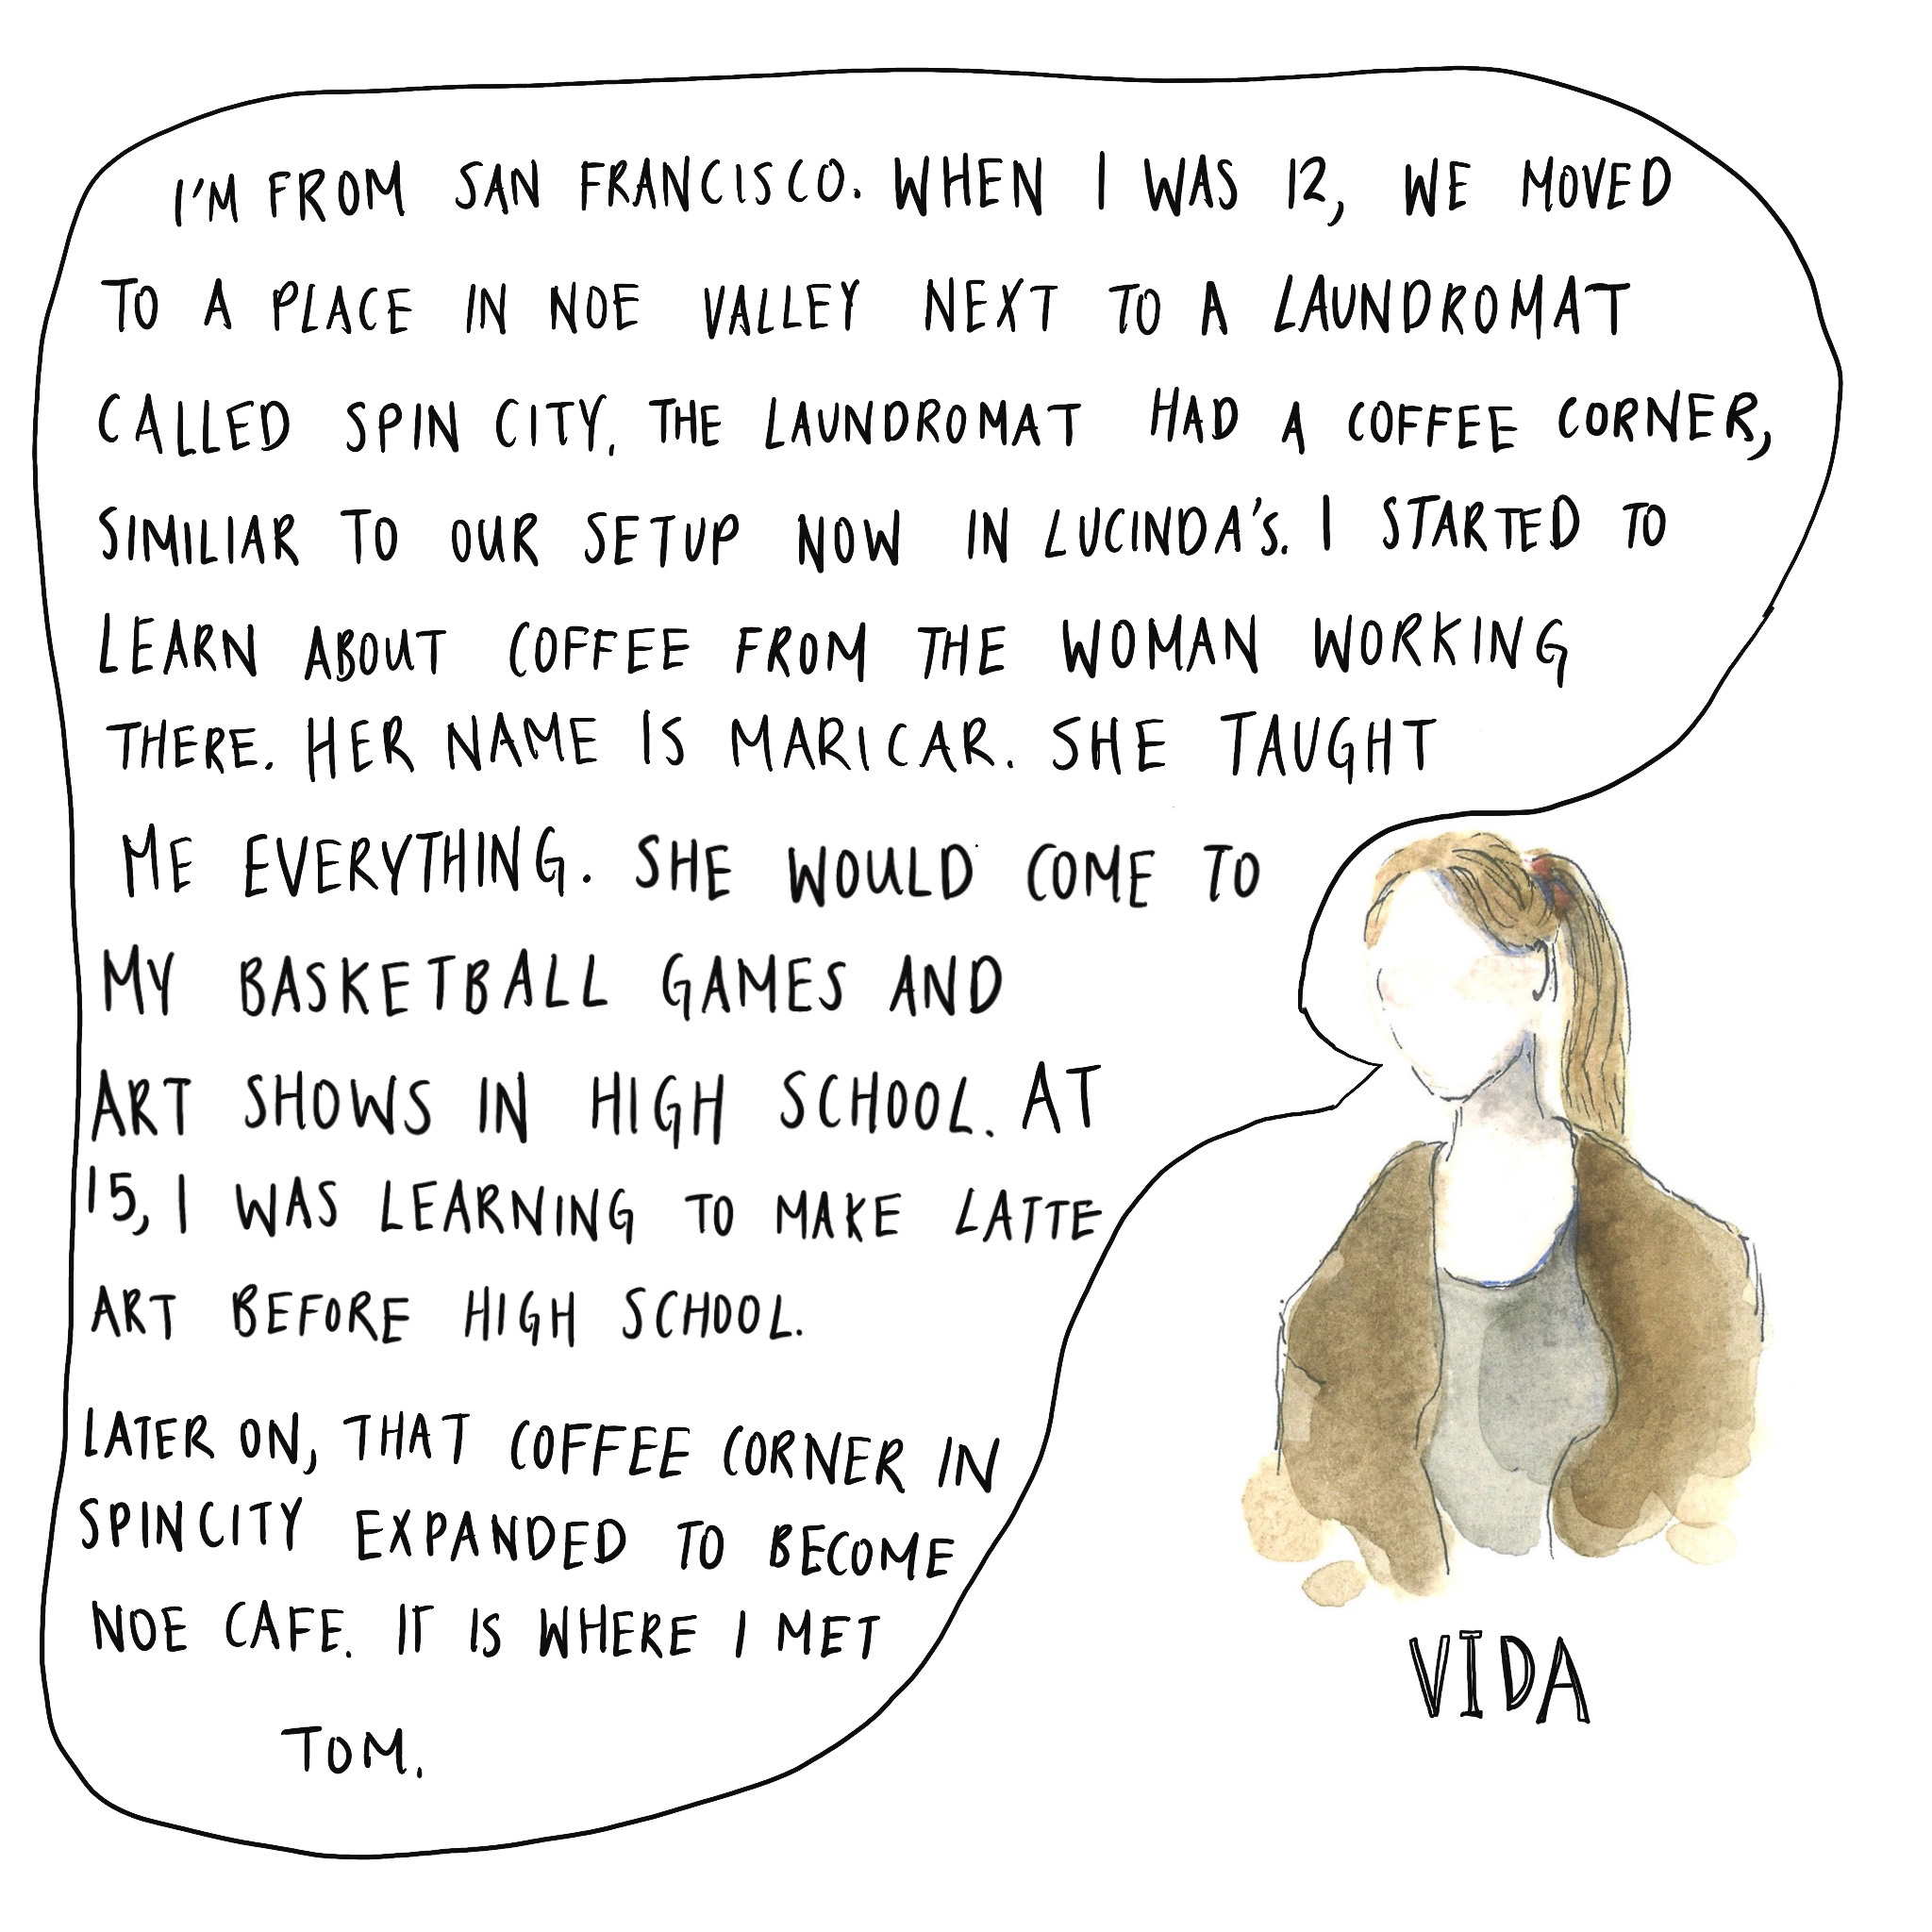 I'M FROM SAN FRANCISCO. WHEN I WAS 12, WE MOVED
TO A PLACE IN NOE VALLEY NEXT TO A LAUNDROMAT
CALLED SPIN CITY. THE LAUNDROMAT HAD A COFFEE CORNER,
SIMILIAR TO OUR SETUP NOW IN LUCINDA'S. I STARTED TO
LEARN ABOUT COFFEE FROM THE WOMAN WORKING
THERE. HER NAME IS MARICAR. SHE TAUGHT
ME EVERYTHING. SHE WOULD COME TO
MY BASKETBALL GAMES AND
ART SHOWS IN HIGH SCHOOL. AT
15, I WAS LEARNING TO MAKE LATTE
ART BEFORE HIGH SCHOOL.
LATER ON, THAT COFFEE CORNER IN
SPIN CITY EXPANDED TO BECOME
NOE CAFE. IT IS WHERE I MET
TOM.
VIDA